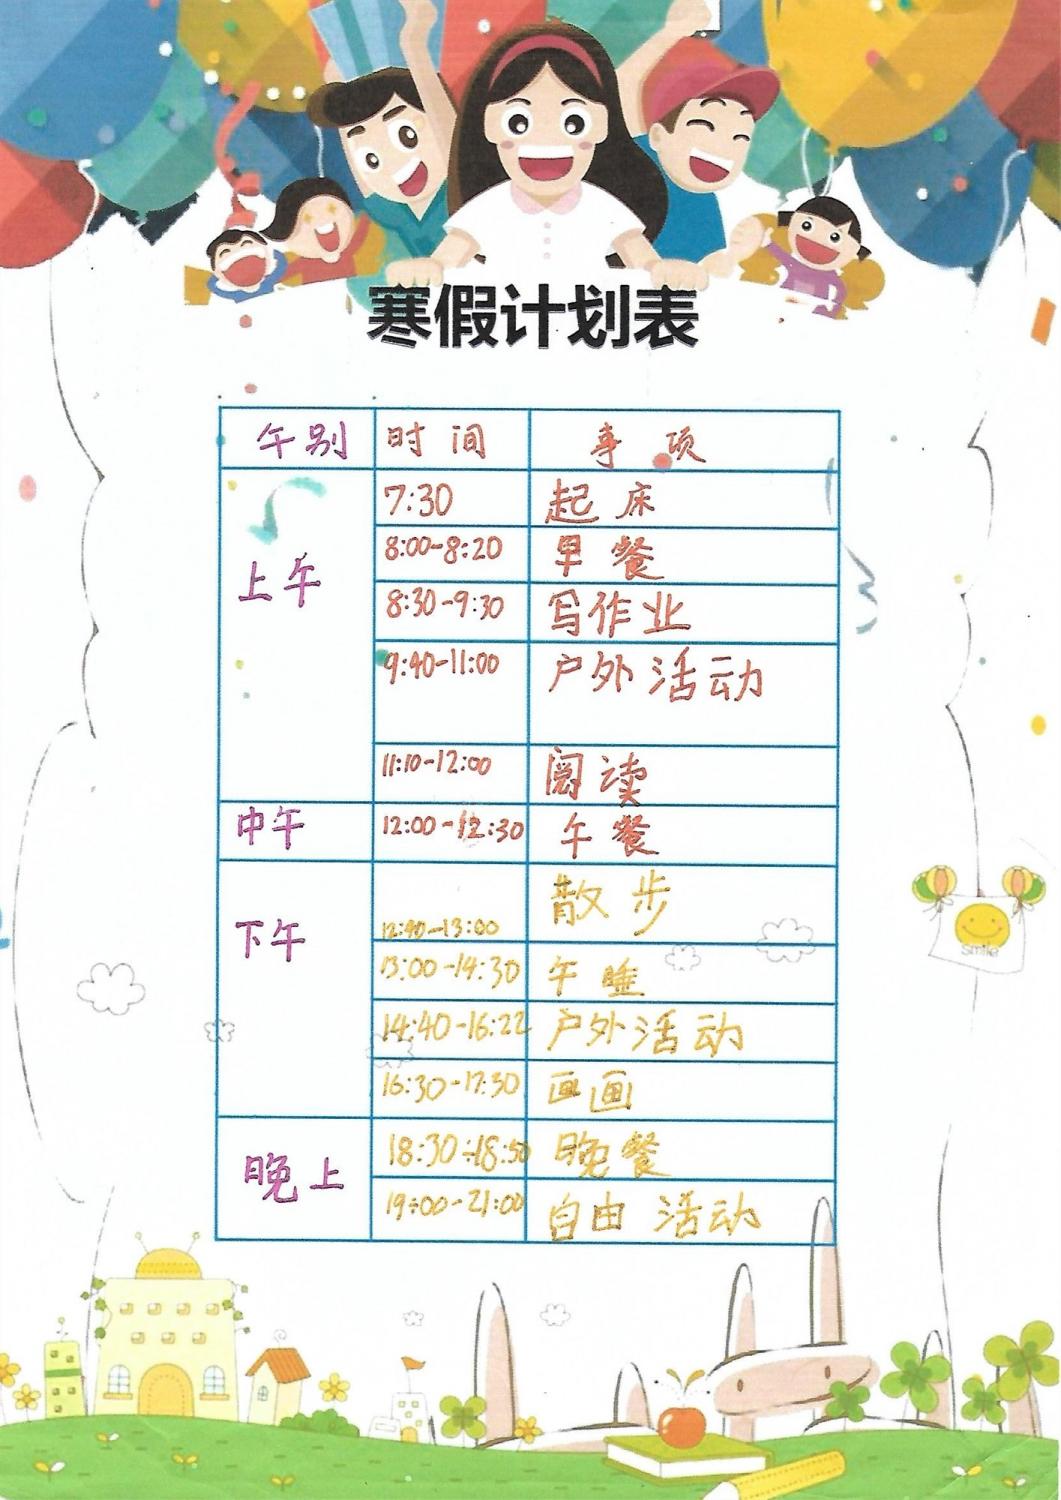 寒假计划表
午别 时间 事项
上午 7:30 起床
8:00-8:20 早餐
8:30-9:30 写作业
9:40-11:00 户外活动
11:10-12:00 阅读
中午 12:00-12:30 午餐
下午 12:40-13:00 散步
13:00-14:30 午睡
14:40-16:22 户外活动
16:30-17:30 画画
晚上 18:30-18:50 晚餐
19:00-21:00 自由活动
smile